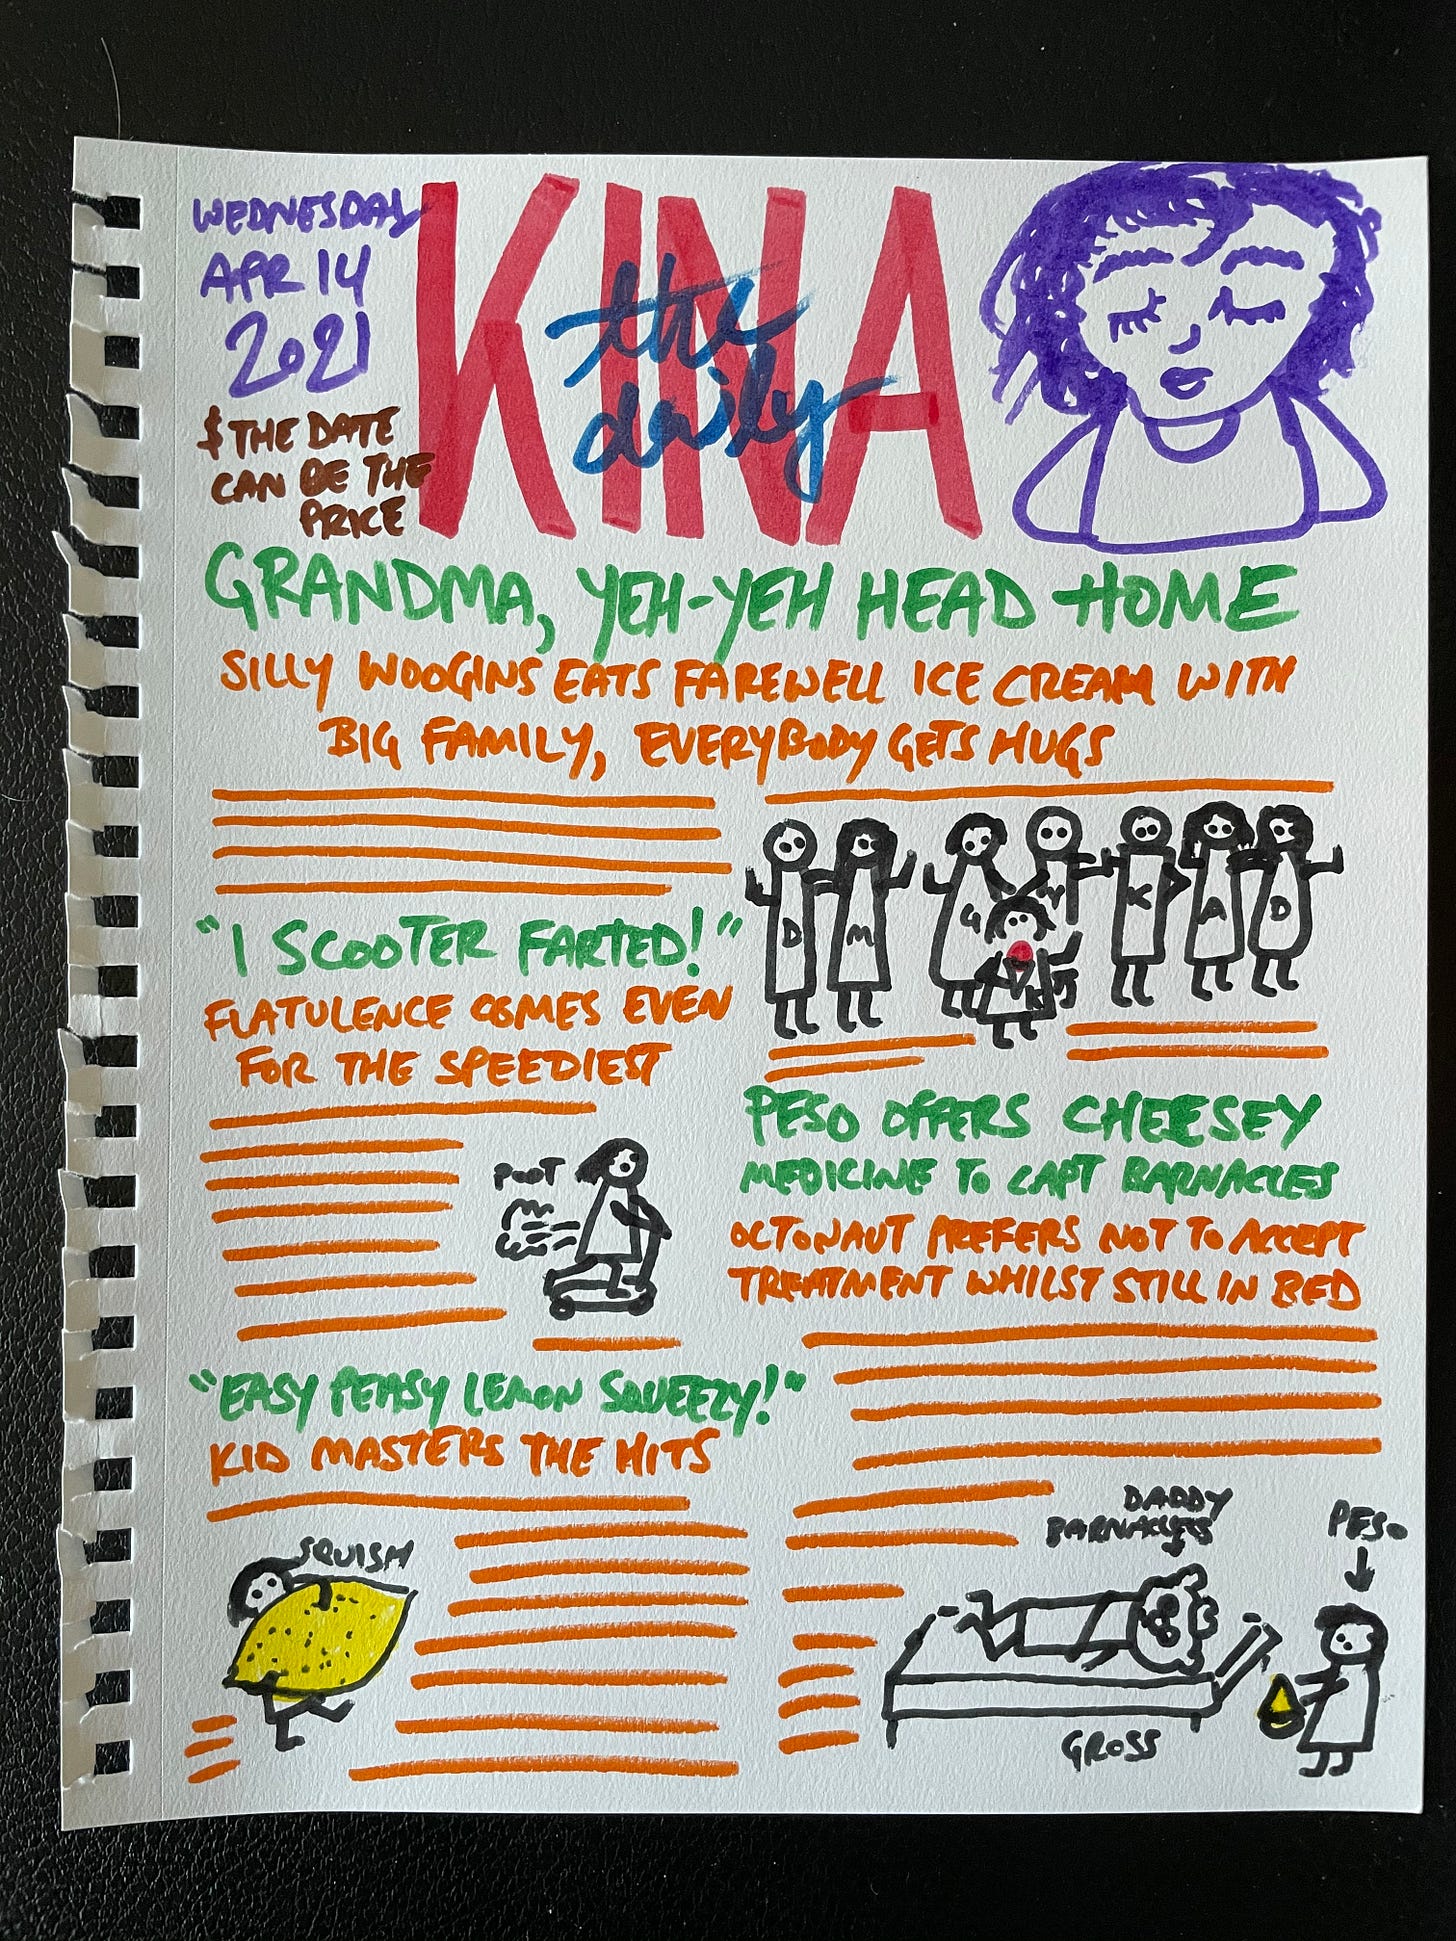 WEDNESDAY
APR 14
2021
$ THE DATE
CAN BE THE
PRICE
the
daily
KINA
GRANDMA, YEH-YEH HEAD HOME
SILLY WOOGINS EATS FAREWELL ICE CREAM WITH
BIG FAMILY, EVERYBODY GETS HUGS
D M G Y K A D
"I SCOOTER FARTED!"
FLATULENCE COMES EVEN
FOR THE SPEEDIEST
POOT
PESO OFFERS CHEESEY
MEDICINE TO CAPT BARNACLES
OCTONAUT PREFERS NOT TO ACCEPT
TREATMENT WHILST STILL IN BED
"EASY PEASY LEMON SQUEEZY!"
KID MASTERS THE HITS
SQUISH
DADDY
BARNACLES
PESO
GROSS